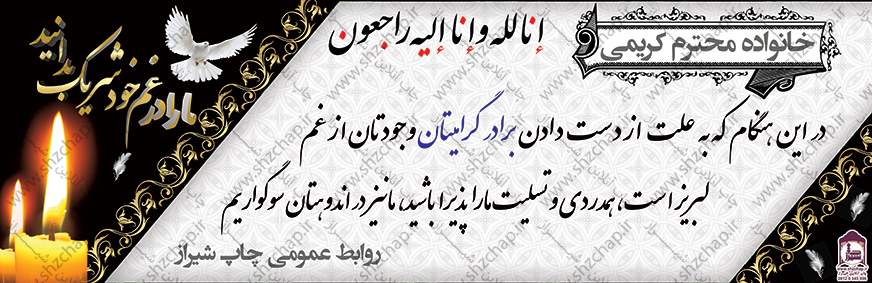 انا لله و انا الیه راجعون
خانواده محترم کریمی
ما را در غم خود شریک بدانید
در این هنگام که به علت از دست دادن برادر گرامیتان وجودتان از غم
لبریز است، همدردی و تسلیت ما را پذیرا باشید، ما نیز در اندوهتان سوگواریم
روابط عمومی چاپ شیراز
www.shzchap.ir